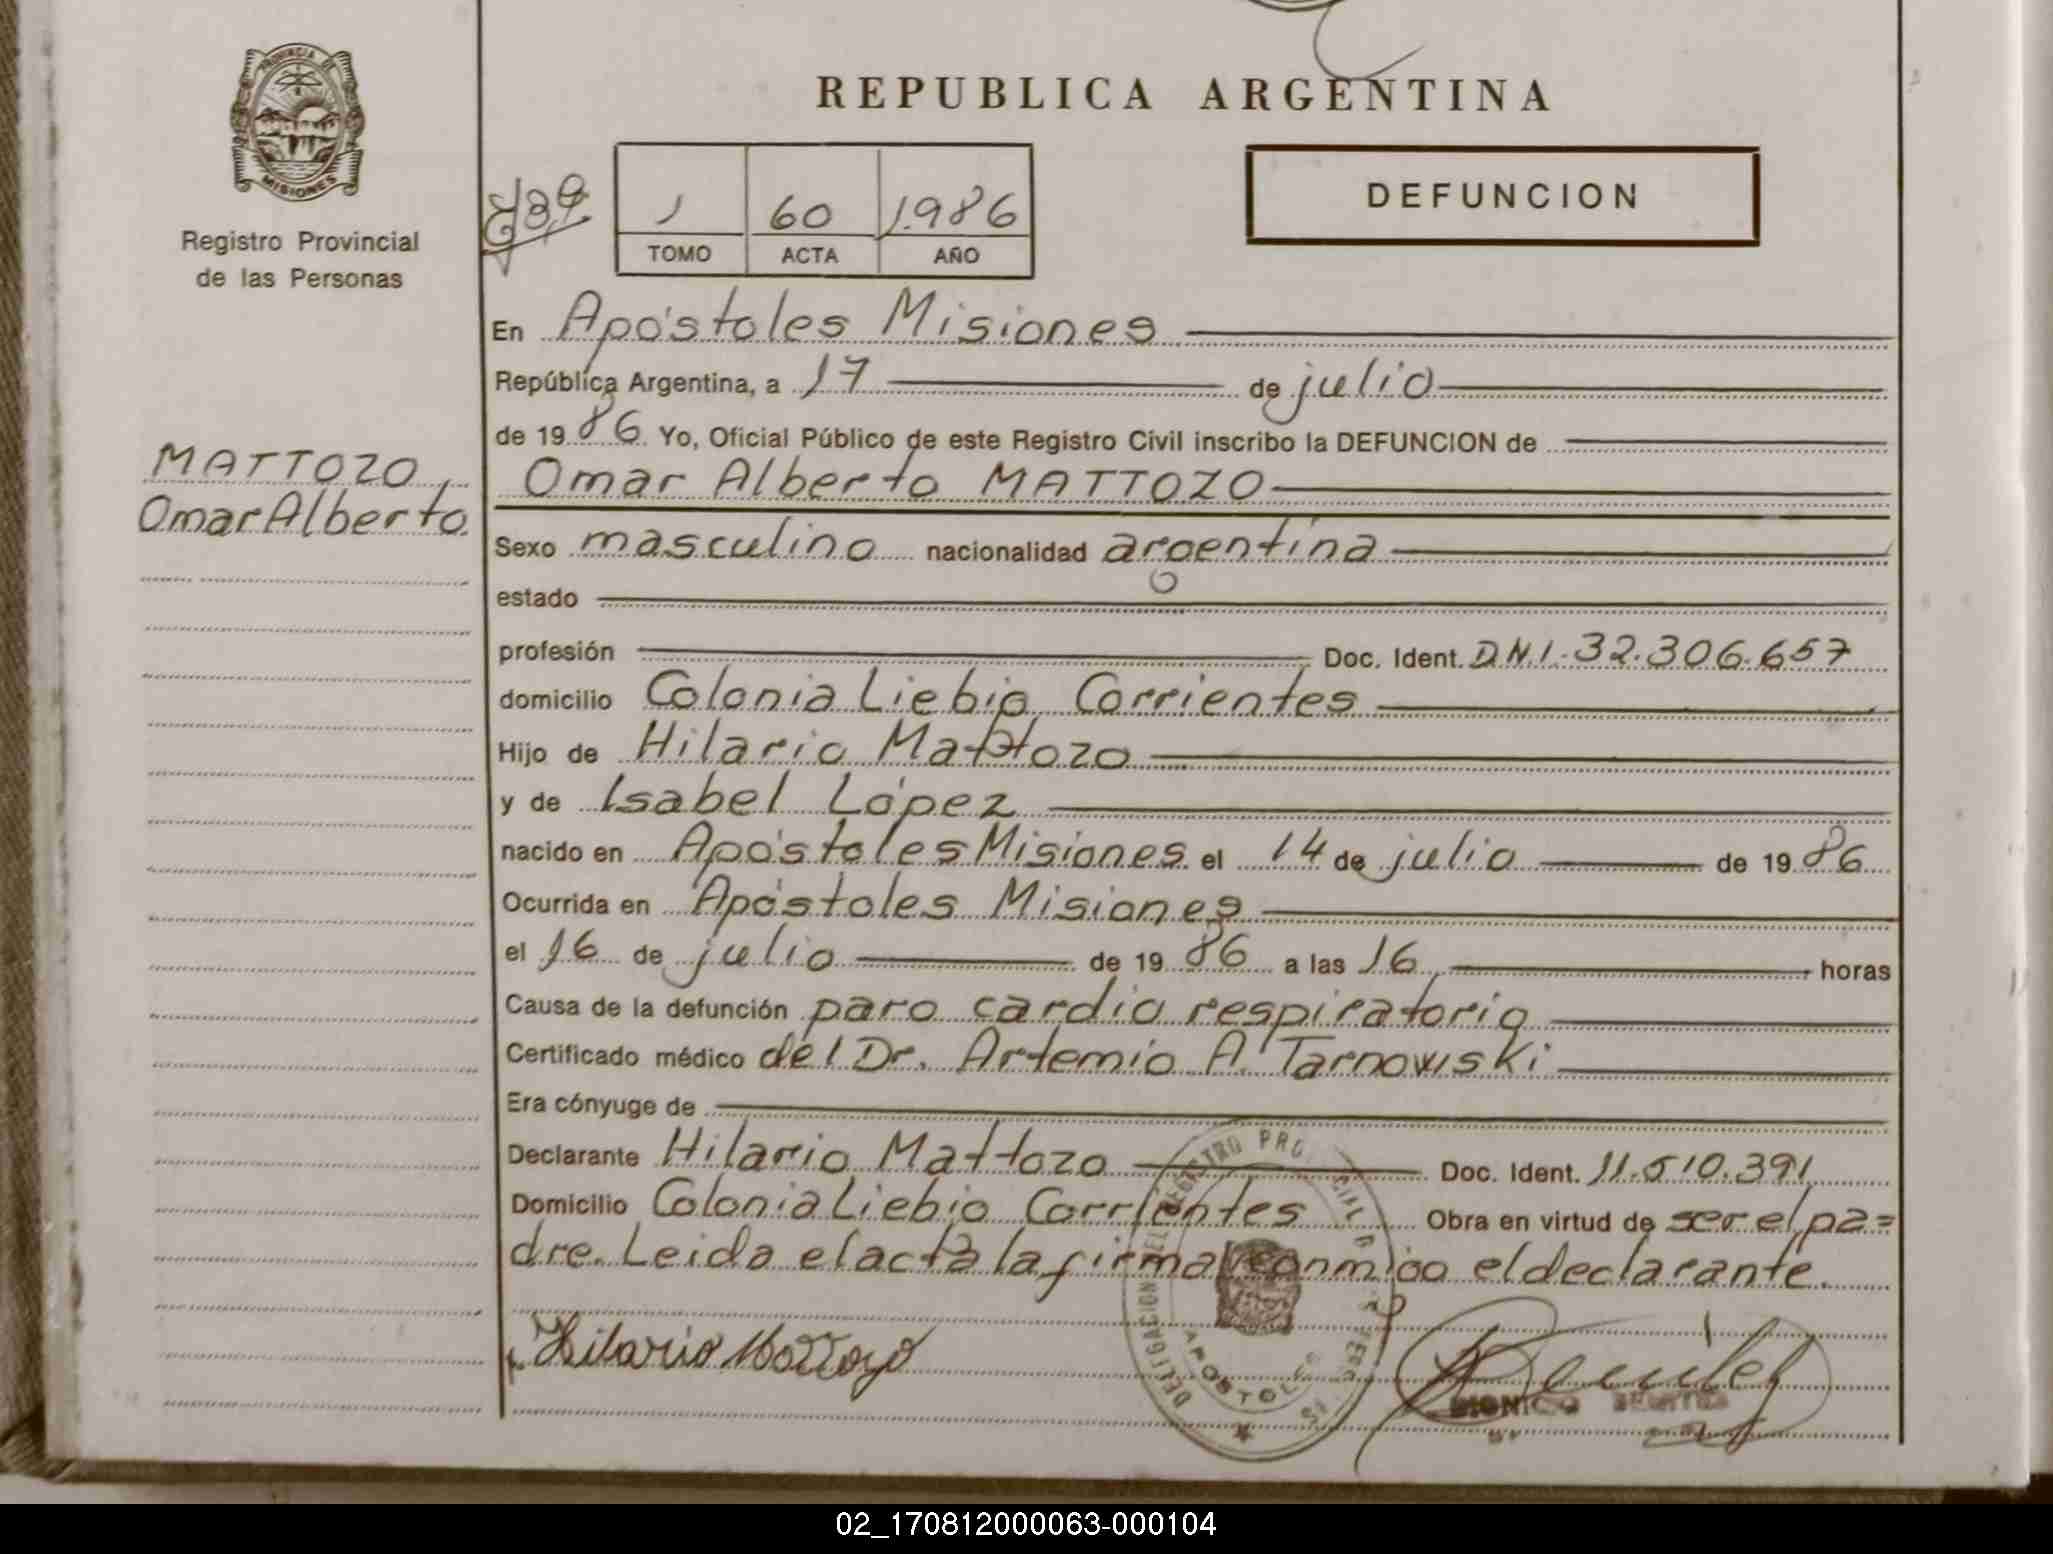 PROVINCIA DE
MISIONES
Registro Provincial
de las Personas
MATTOZO,
Omar Alberto.
REPUBLICA ARGENTINA
DEFUNCION
1 60 1.986
TOMO ACTA AÑO
En Apóstoles Misiones
República Argentina, a 17 de julio
de 1986 Yo, Oficial Público de este Registro Civil inscribo la DEFUNCION de
Omar Alberto MATTOZO
Sexo masculino nacionalidad argentina
estado
profesión Doc. Ident. D.N.I. 32.306.657
domicilio Colonia Liebig Corrientes
Hijo de Hilario Mattozo
y de Isabel López
nacido en Apóstoles Misiones el 14 de julio de 1986
Ocurrida en Apóstoles Misiones
el 16 de julio de 1986 a las 16 horas
Causa de la defunción paro cardio respiratorio
Certificado médico del Dr. Artemio A. Tarnowski
Era cónyuge de
Declarante Hilario Mattozo Doc. Ident. 11.510.391
Domicilio Colonia Liebig Corrientes Obra en virtud de ser el pa=
dre. Leida el acta la firma conmigo el declarante.
Hilario Mattozo
DELEGACION DEL REGISTRO PROVINCIAL DE LAS
APOSTOLES
02_170812000063-000104